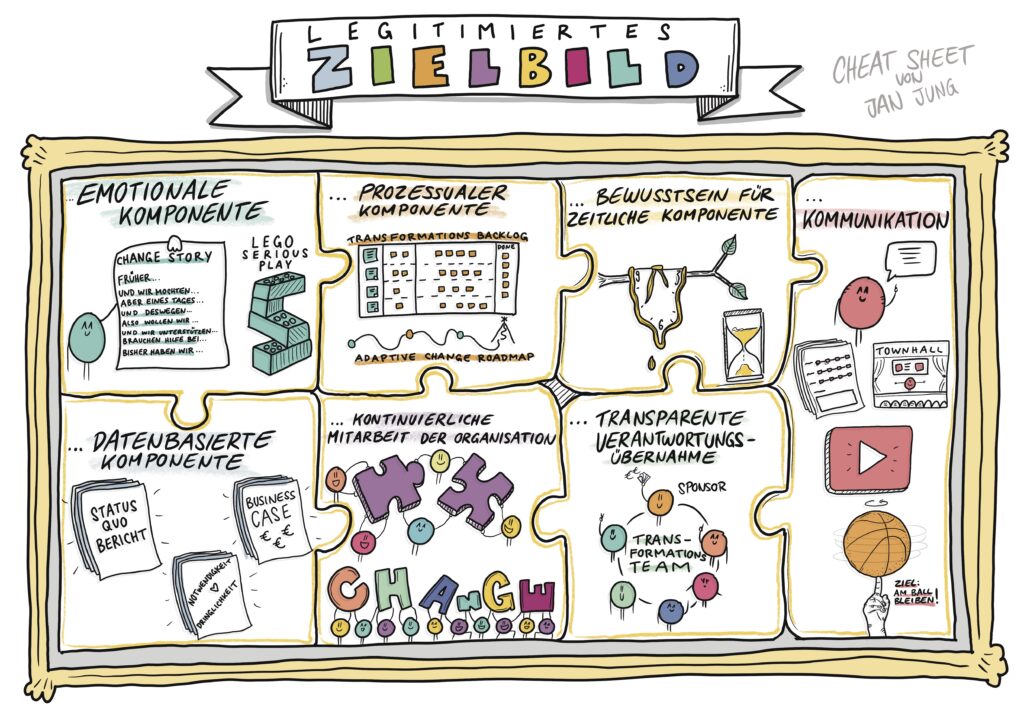 LEGITIMIERTES
ZIELBILD
CHEAT SHEET
VON
JAN JUNG
... EMOTIONALE
KOMPONENTE
CHANGE STORY
FRÜHER...
UND WIR MOCHTEN...
ABER EINES TAGES...
UND DESWEGEN...
ALSO WOLLEN WIR...
UND WIR UNTERSTÜTZEN...
BRAUCHEN HILFE BEI...
BISHER HABEN WIR...
LEGO
SERIOUS
PLAY
... PROZESSUALER
KOMPONENTE
TRANSFORMATIONS BACKLOG
DONE
ADAPTIVE CHANGE ROADMAP
... BEWUSSTSEIN FÜR
ZEITLICHE KOMPONENTE
6
...
KOMMUNIKATION
TOWNHALL
ZIEL:
AM BALL
BLEIBEN!
... DATENBASIERTE
KOMPONENTE
STATUS
QUO
BERICHT
BUSINESS
CASE
€ €
€
NOTWENDIGKEIT
DRINGLICHKEIT
... KONTINUIERLICHE
MITARBEIT DER ORGANISATION
CHANGE
... TRANSPARENTE
VERANTWORTUNGS-
ÜBERNAHME
€
SPONSOR
TRANS-
FORMATIONS
TEAM